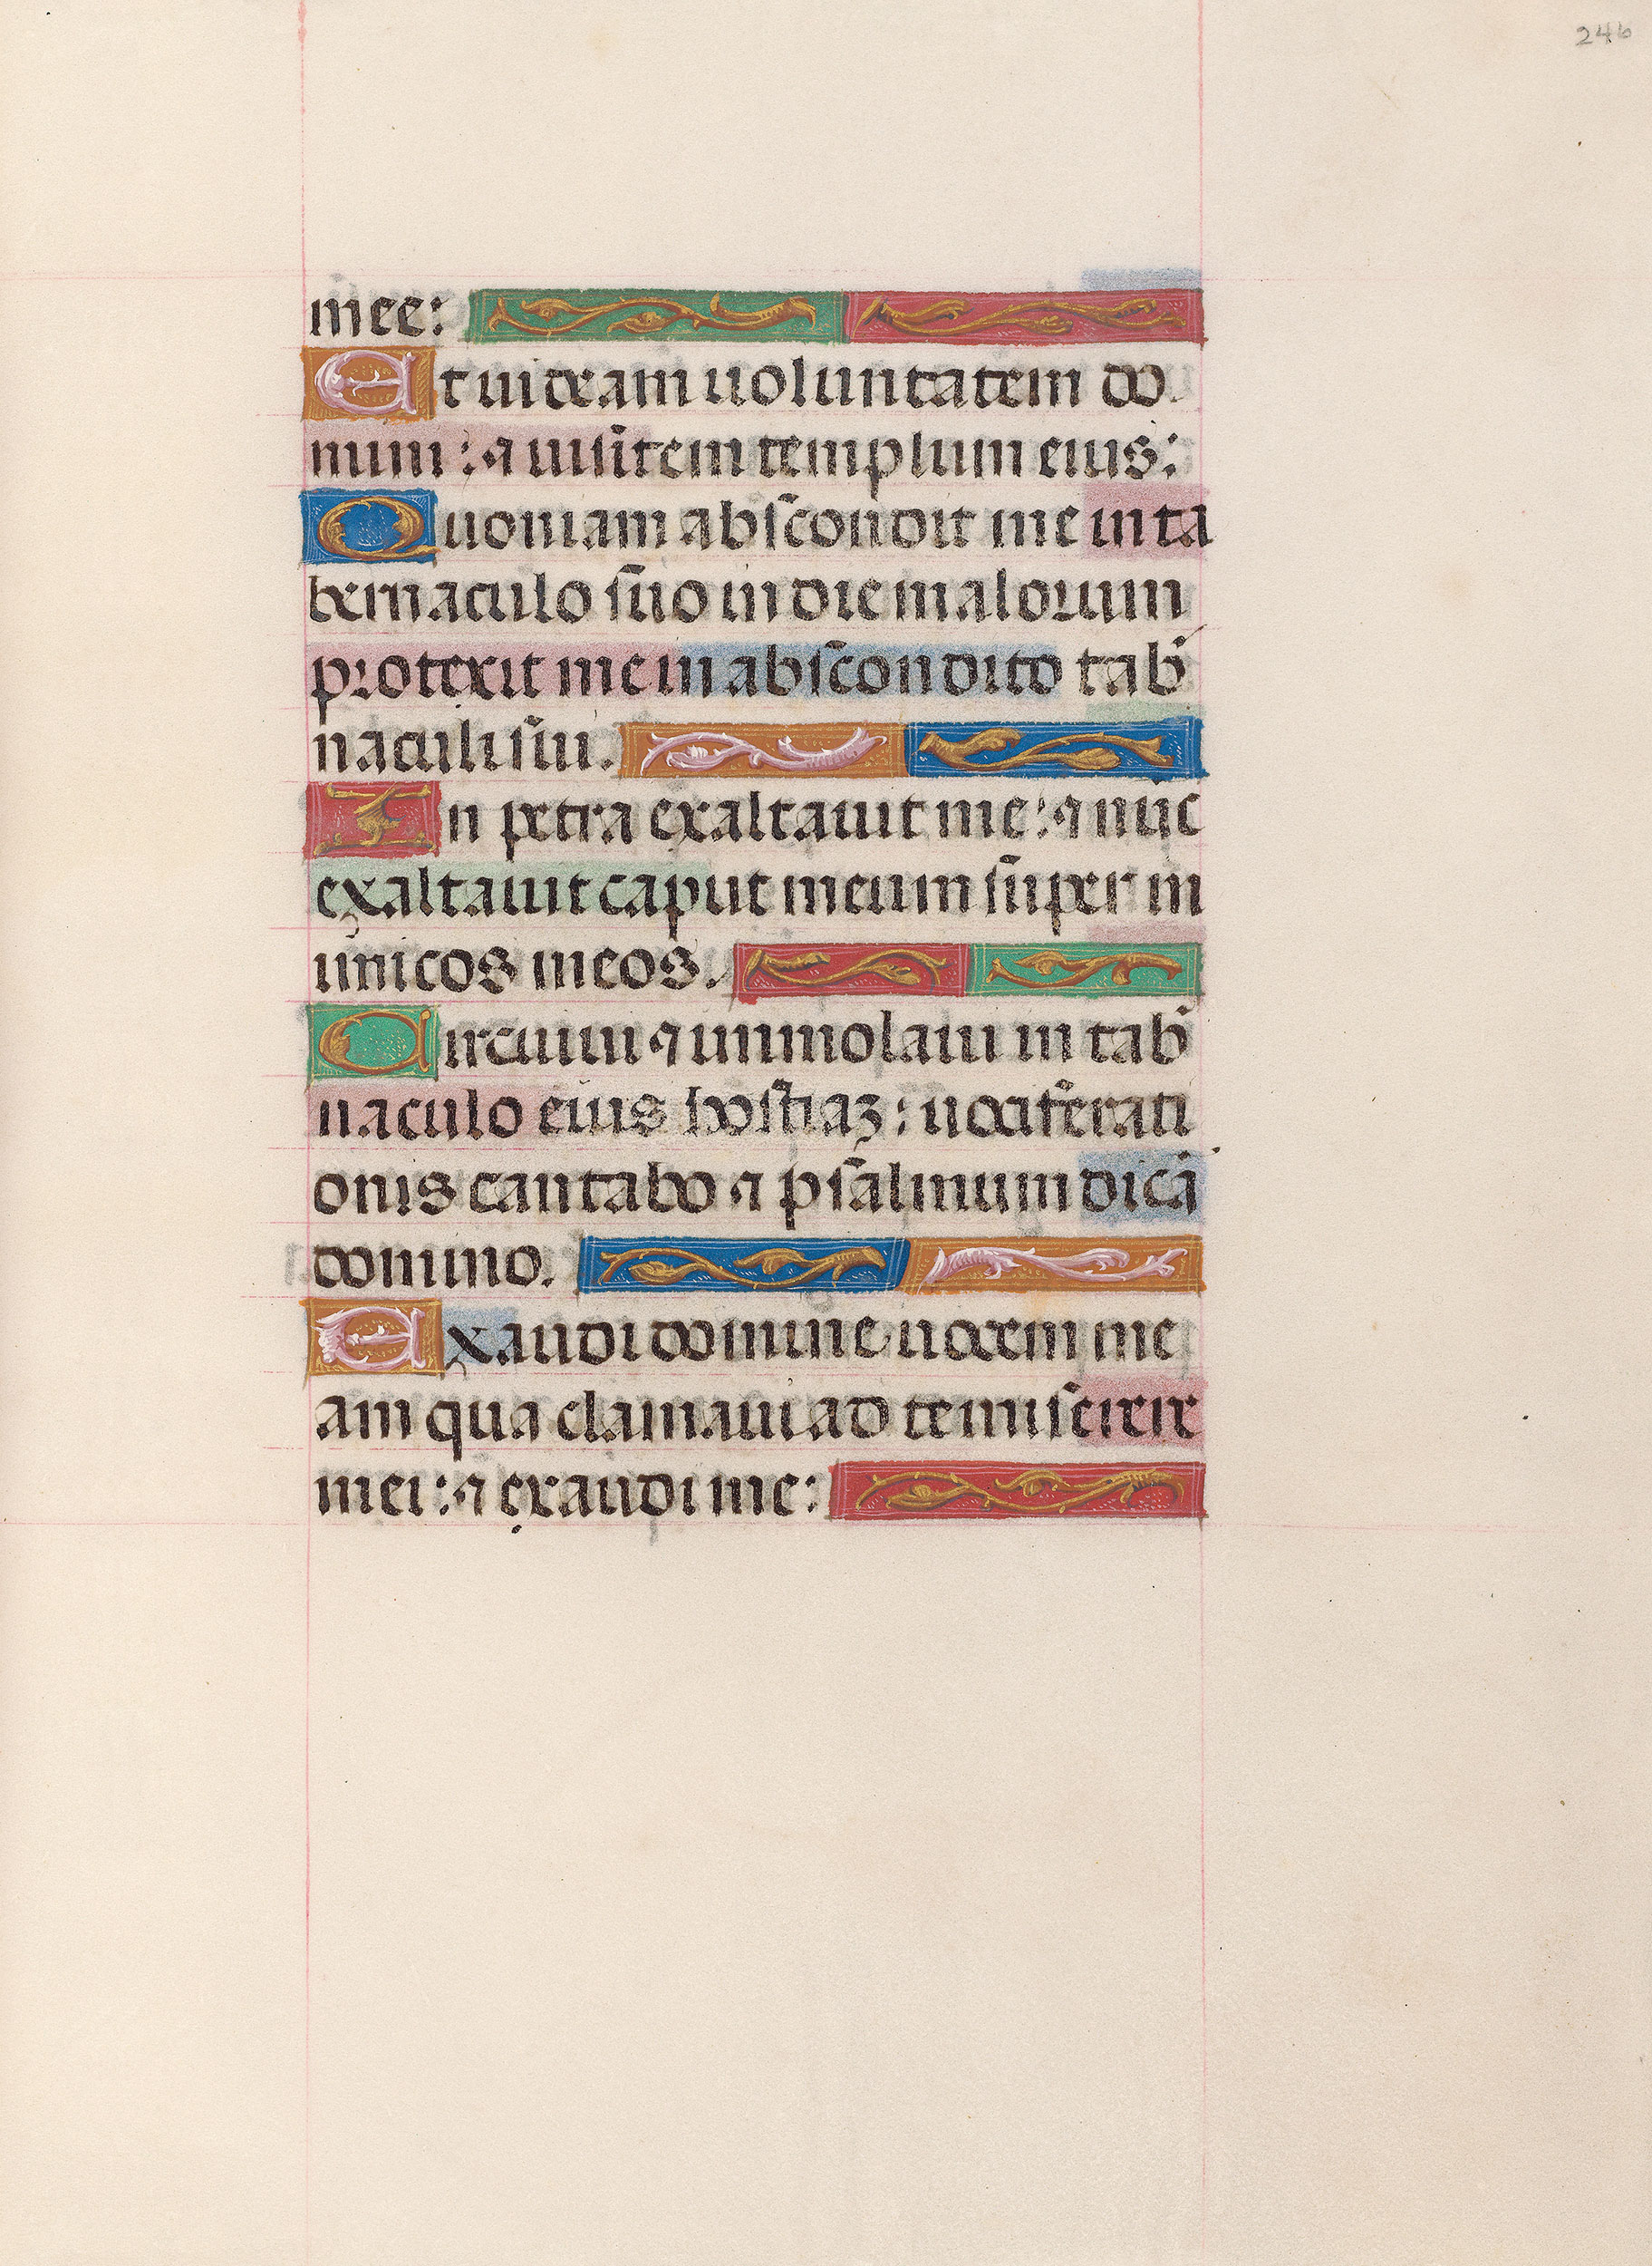 246
mee:
Et uideam uoluntatem do
mini : ⁊ uisitem templum eius:
Quoniam abscondit me in ta
bernaculo suo in die malorum
protexit me in abscondito tab̄
naculi sui.
In petra exaltauit me: ⁊ nūc
exaltauit caput meum super in
imicos meos.
Circuiui ⁊ immolaui in tab̄
naculo eius hostiaz : uociferati
onis cantabo ⁊ psalmum dicā
domino.
Exaudi domine uocem me
am qua clamaui ad te miserere
mei: ⁊ exaudi me: